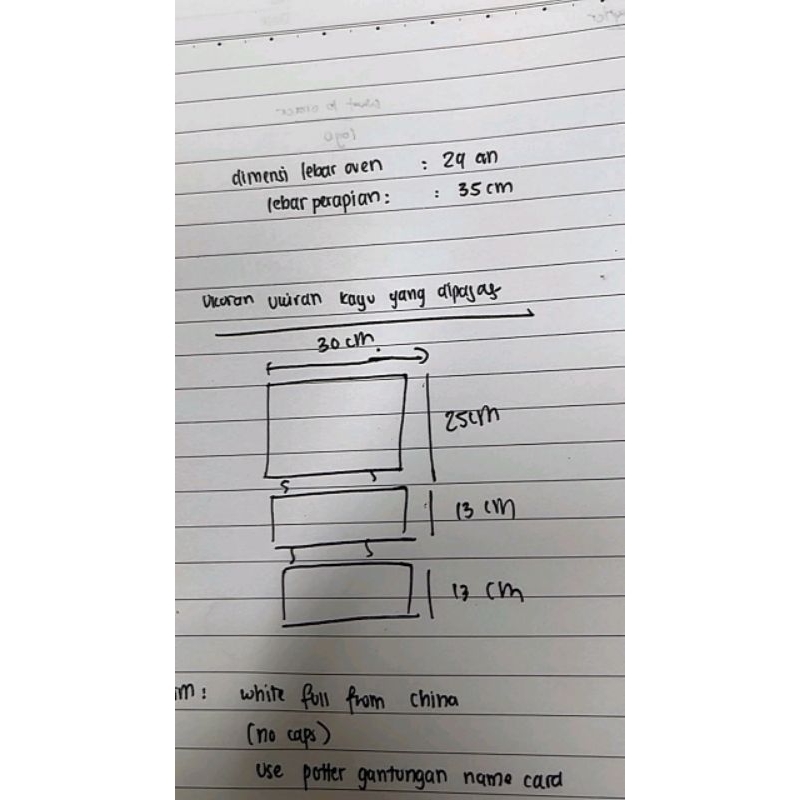 dimensi lebar oven : 29 cm
lebar perapian: : 35 cm
Ukuran uwiran kayu yang dipajag
30 cm.
25cm
13 cm
13 cm
m: white full from china
(no caps)
use potter gantungan name card